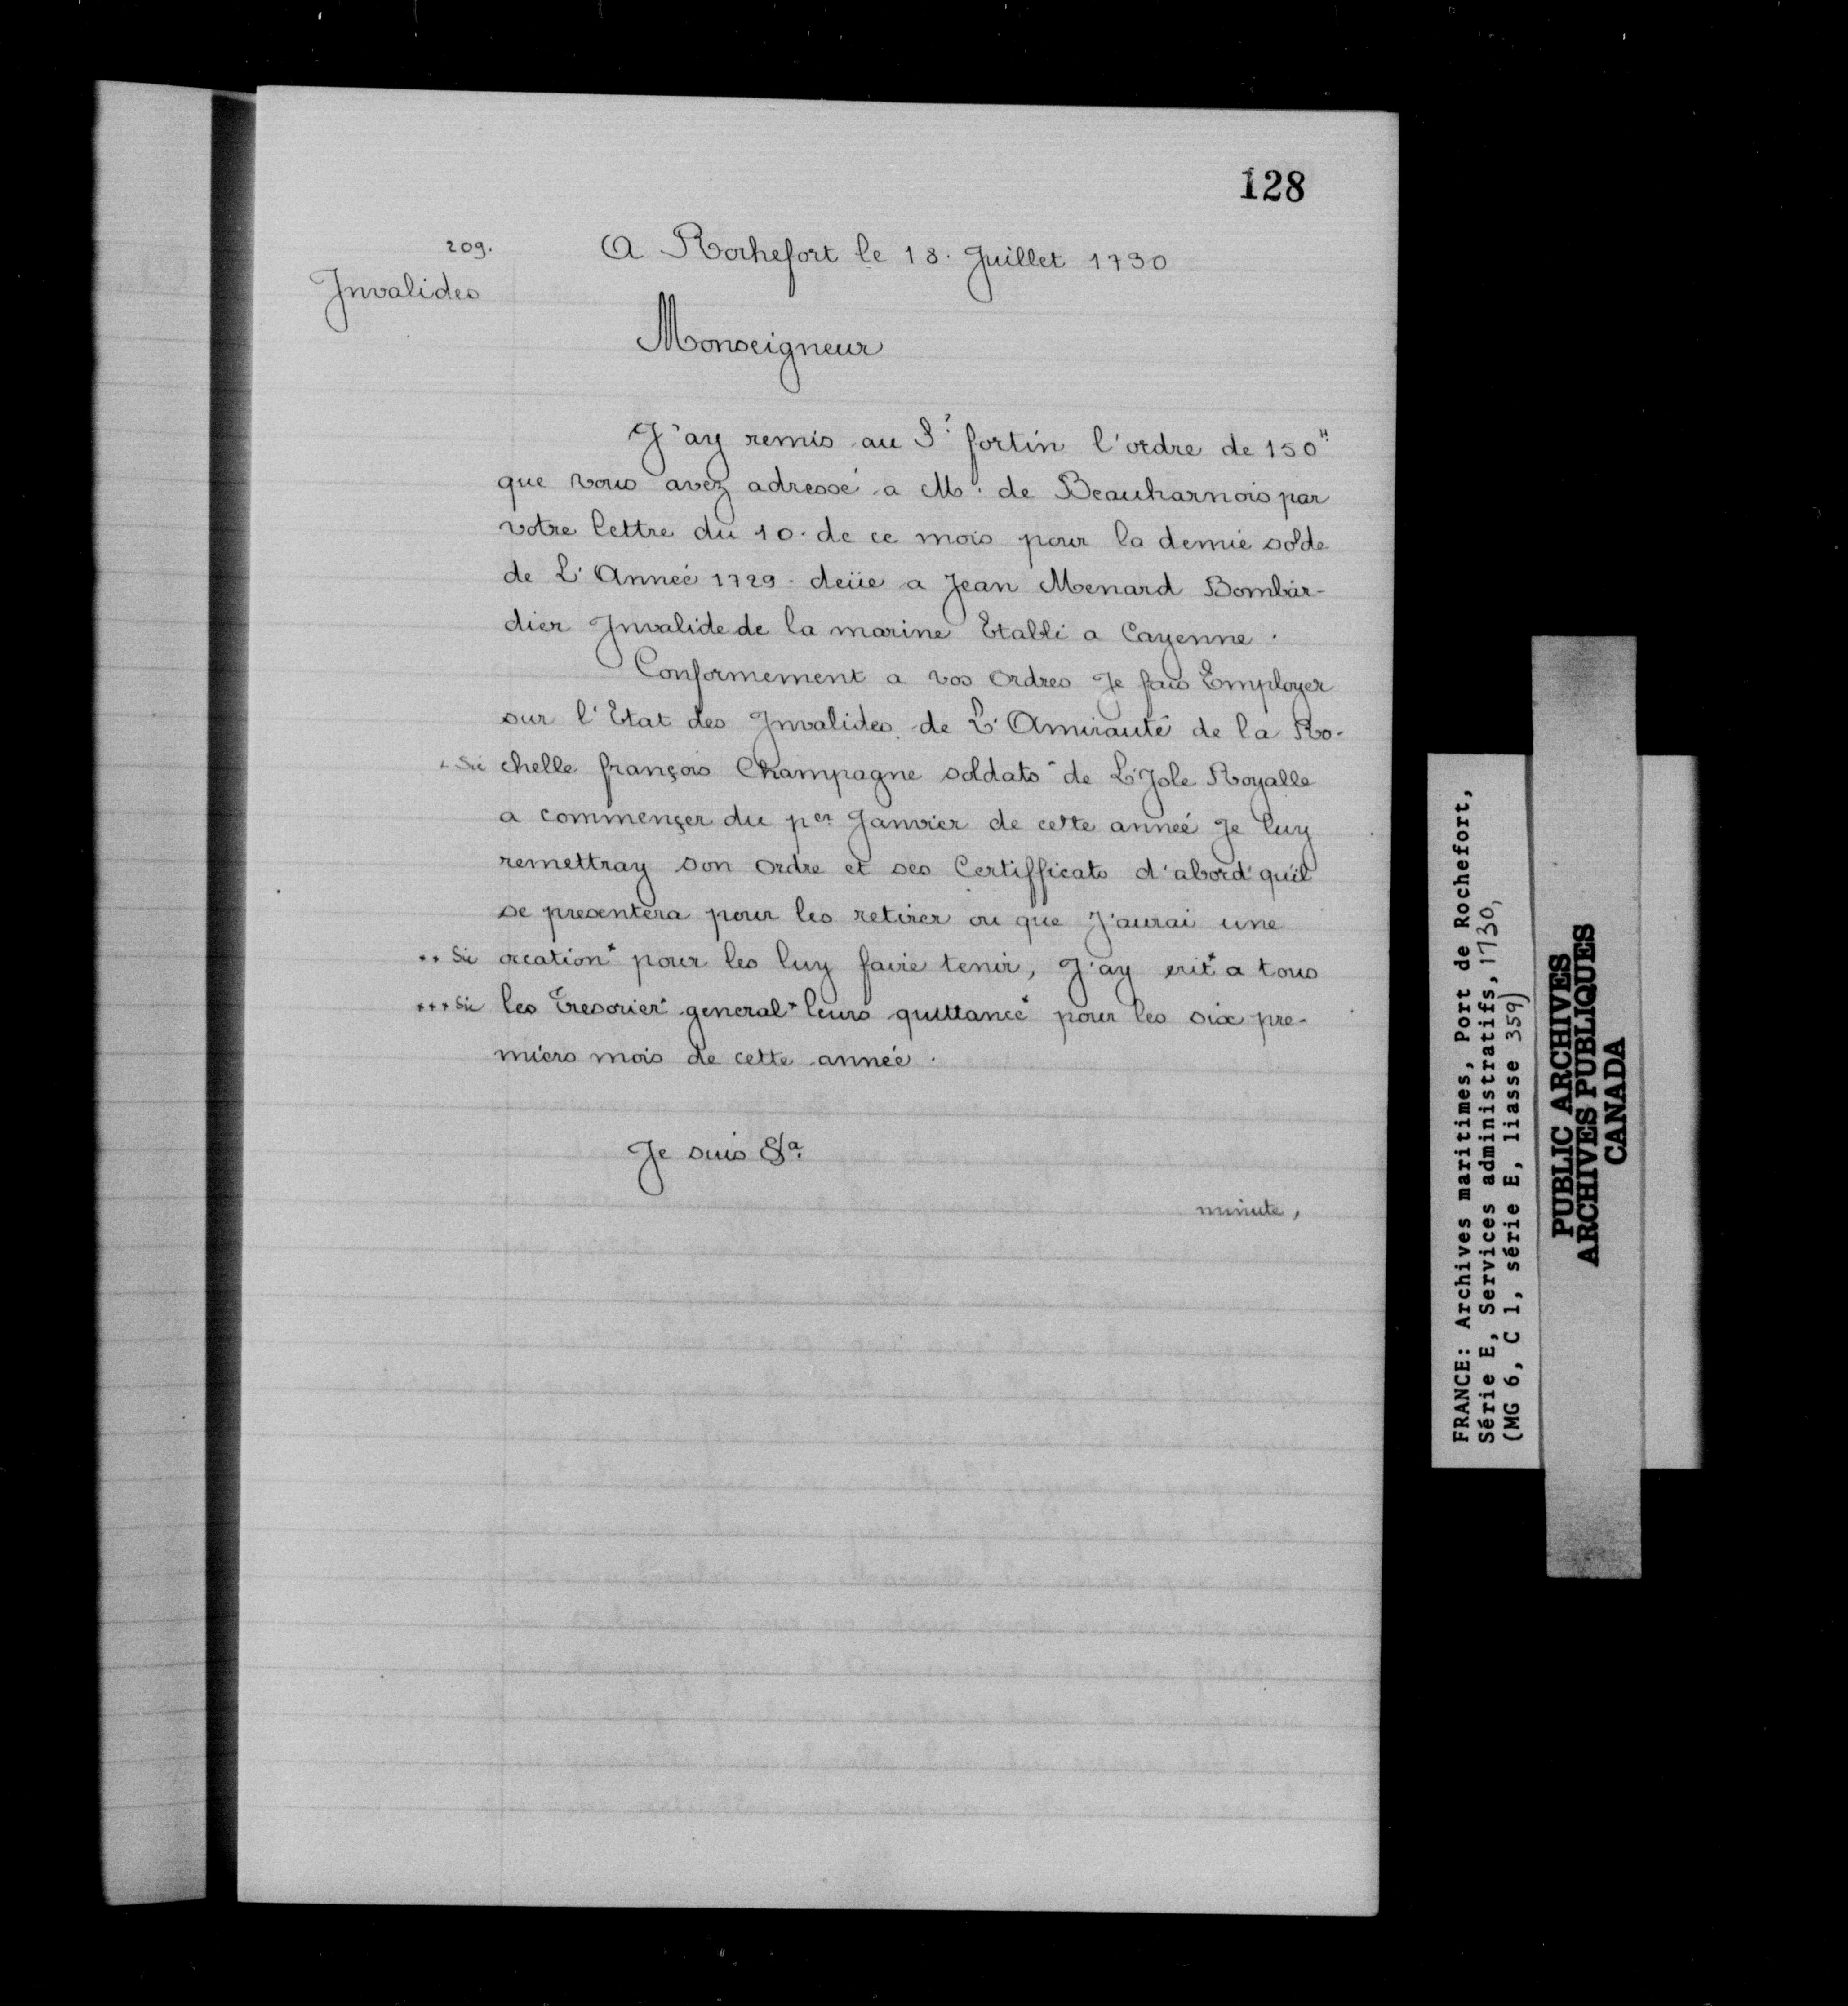 128
209.
A Rochefort le 18. Juillet 1730
Invalides
Monseigneur
J'ay remis au Sr. fortin l'ordre de 150#
que vous avez adressé a M. de Beauharnois par
votre lettre du 10. de ce mois pour la demie solde
de L'Anneé 1729. deüe a Jean Menard Bombar-
dier Invalide de la marine Etabli a Cayenne.
Conformement a vos Ordres Je fais Employer
sur l'Etat des Invalides de L'Amirauté de la Ro-
* Sic chelle françois Champagne soldats* de L'Isle Royalle
a commençer du per Janvier de cette anneé Je luy
remettray son Ordre et ses Certifficats d'abord qu'il
se presentera pour les retirer ou que J'aurai une
** Sic ocation* pour les luy faire tenir, J'ay erit* a tous
*** Sic les Tresorier* general* leurs quittance* pour les six pre-
miers mois de cette anneé.
Je suis &a.
minute,
FRANCE: Archives maritimes, Port de Rochefort,
Série E, Services administratifs, 1730,
(MG 6, C 1, série E, liasse 359)
PUBLIC ARCHIVES
ARCHIVES PUBLIQUES
CANADA